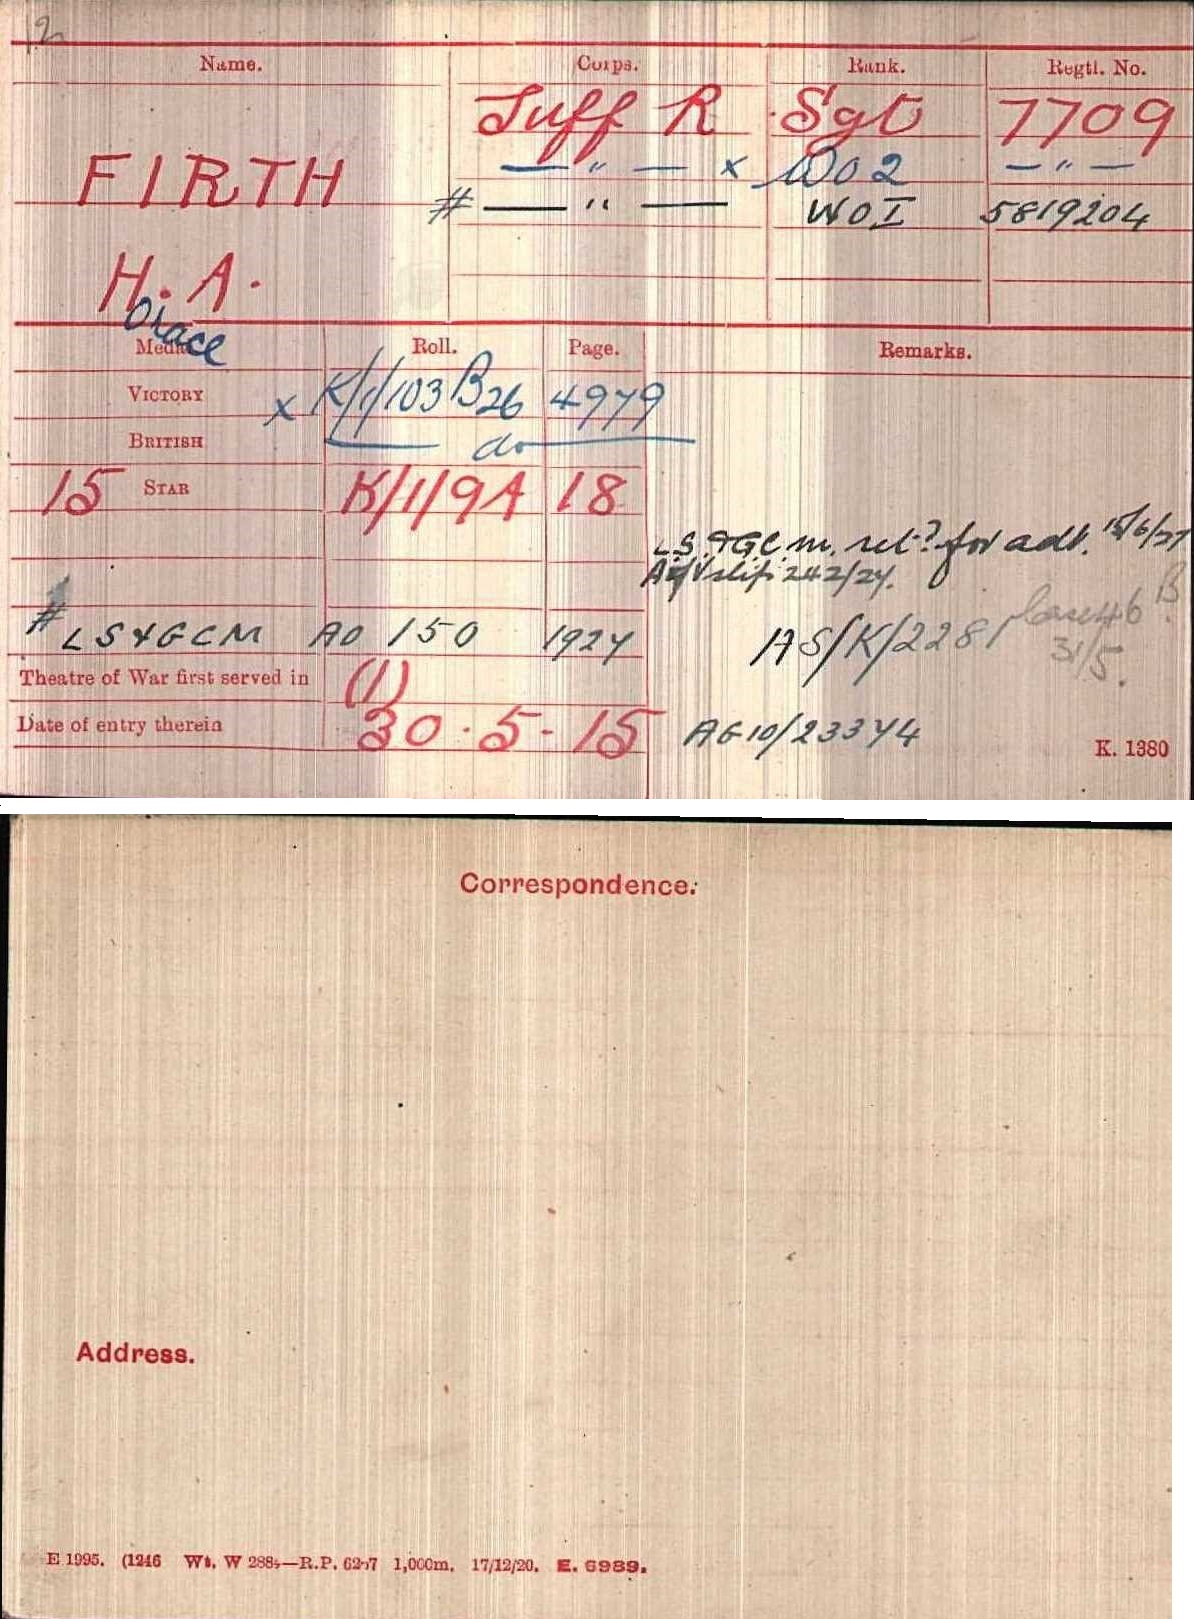 12
Name. Corps. Rank. Regtl. No.
Suff R Sgt 7709
— " — x WO2 — " —
FIRTH
# — " — WOI 5819204
H. A.
Orace
Medal Roll. Page. Remarks.
VICTORY x K/1/103 B26 4979
BRITISH — do —
15 STAR K/1/9A 18
L.S. & G.C.m. ret? for adt. 15/6/27
242/24.
# LS & GCM AO 150 1924 AS/K/2281 46 B
31/5.
Theatre of War first served in (1)
Date of entry therein 30 . 5 - 15 AG10/23344
K. 1380
Correspondence.
Address.
E 1995. (1246 Wt. W 288 —R.P. 62 7 1,000m. 17/12/20. E. 6989.